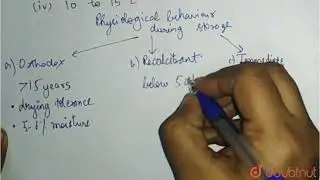 (iv) 10 to 15
Physiological behaviour
during storage
a) Orthodox
b) Recalcitrant
c)
>15 years
below 5
• drying tolerance
• 5-6% moisture
doubtnut